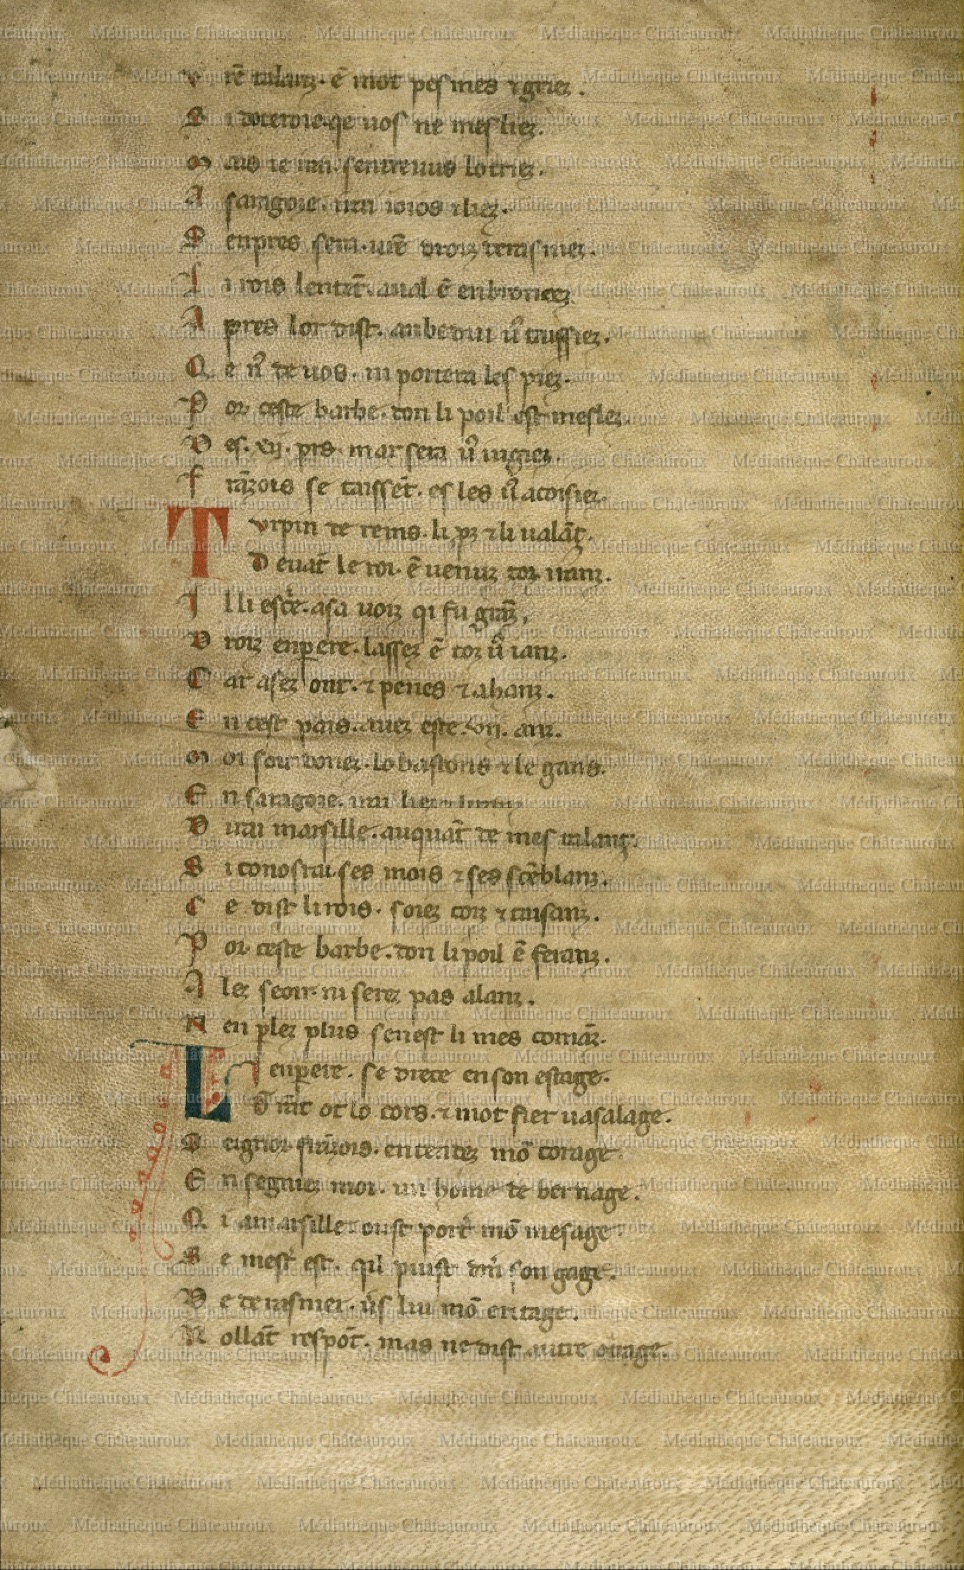 V rē talanz. ē mot pesmes ⁊ griez.
S i doteroie. qe uos ne mesliez.
M ais ie irai. sentreuus lotriez.
A saragoze. irai ioios ⁊ liez.
S enpres sera. urē droiz deraisniez.
L i rois lentēt. aual ē enbronciez.
A pres lor dist. anbedui ū taissiez.
Q e n̄ de uos. ni portera les piez.
P or ceste barbe. don li poil est meslez.
D es .xii. pers. mar sera ū iugiez.
F rāzois se taissēt. es les ū acoisiez.
T vrpin de reins. li pz ⁊ li ualāz.
D euāt le roi. ē uenuz tor nanz.
I lli escē. a sa uoiz qi fu grāz.
D roiz enpere. lassez ē toz ū ianz.
C ar asez ont. ⁊ penes ⁊ ahanz.
E n cest pais. auez este .vii. anz.
M oi soit donez. lo bastons ⁊ le gans.
E n saragoze. irai
D irai marsille. auquāt de mes talanz.
S i conostrai. ses mois ⁊ ses scēblanz.
C e dist li rois. soiez coiz ⁊ taisanz.
P or ceste barbe. don li poil ē feranz.
A lez seoir. ni serez pas alanz.
N en plez plus senest li mes comāz.
L i enpere. se drece en son estage.
G rāt ot lo cors. ⁊ mot fier uasalage.
S eignor frāzois. entendez mō corage.
E n segniez moi. un home de bernage.
Q i a marsille. oust portē mō mesage.
S e mest est. qil puist dr̄ son gage.
D e deraisnier. ūs lui mō eritage.
R ollāt respōt. mas ne dist autre oirage.